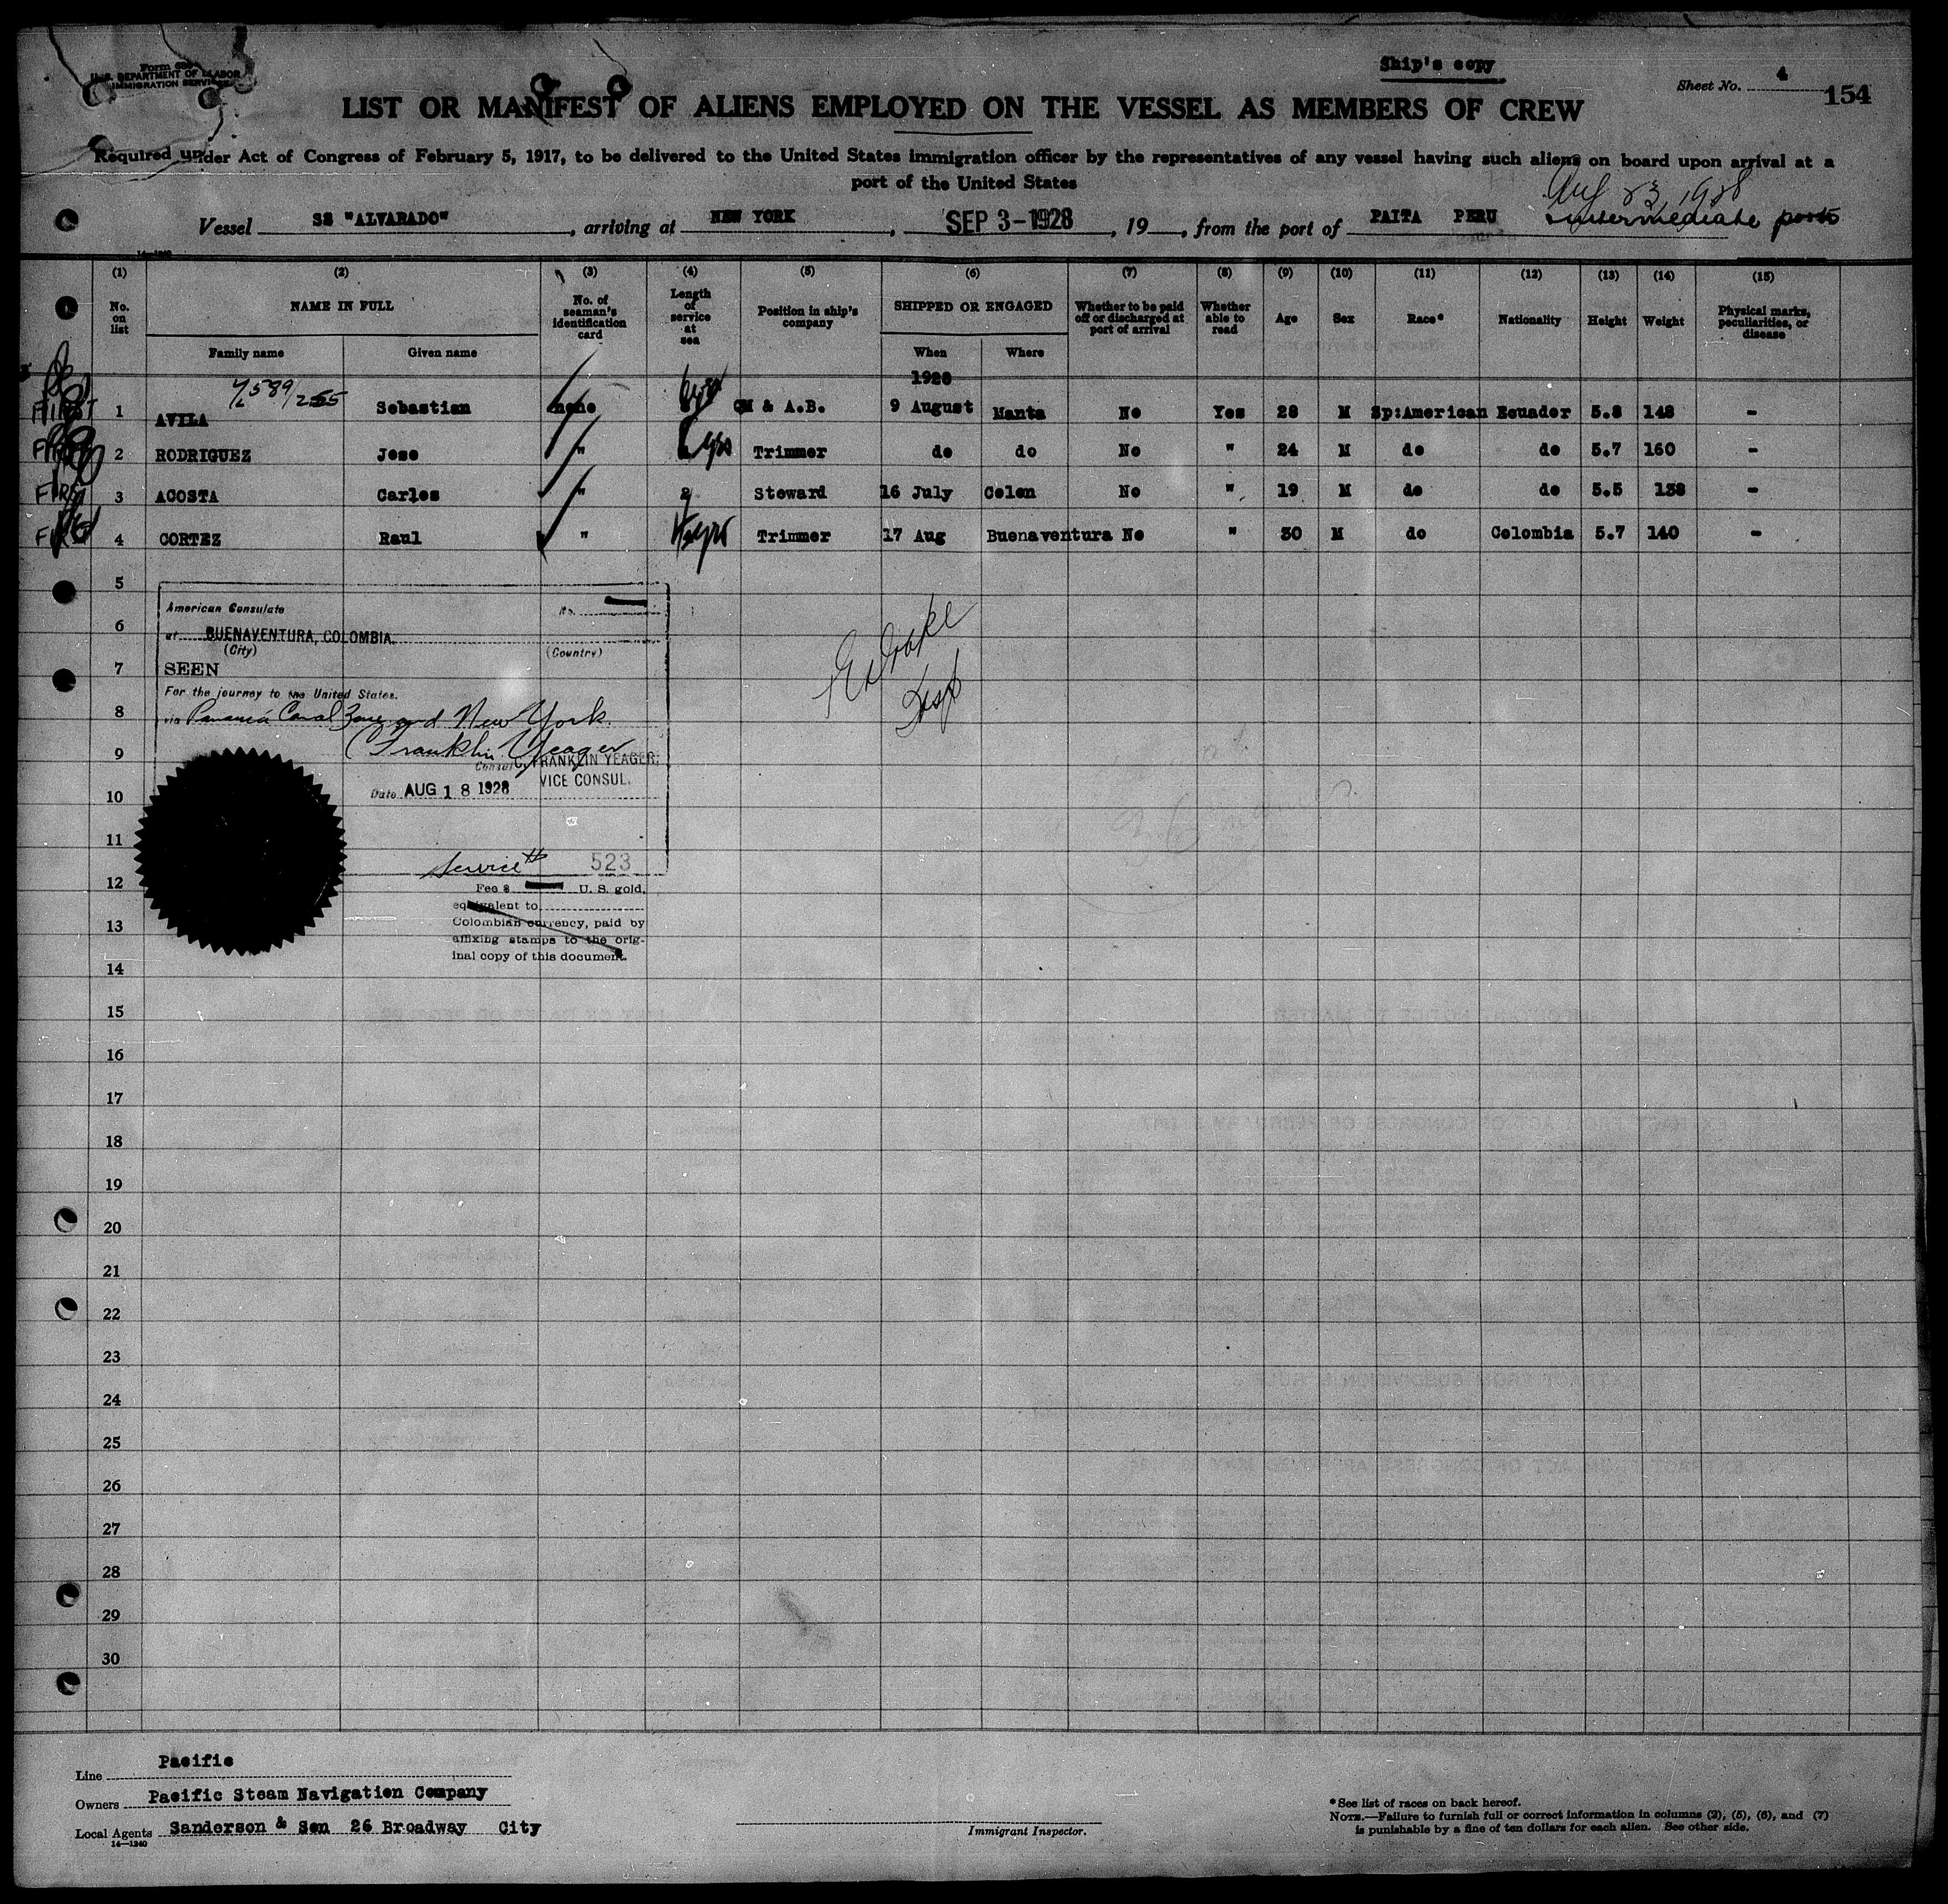 Form 689
U.S. DEPARTMENT OF LABOR
IMMIGRATION SERVICE
Ship's copy
Sheet No. 4
154
LIST OR MANIFEST OF ALIENS EMPLOYED ON THE VESSEL AS MEMBERS OF CREW
Required under Act of Congress of February 5, 1917, to be delivered to the United States immigration officer by the representatives of any vessel having such aliens on board upon arrival at a
port of the United States
Aug 23, 1928
Vessel SS "ALVARADO", arriving at NEW YORK, SEP 3-1928, 19 , from the port of PAITA PERU intermediate ports
14—1240
(1) (2) (3) (4) (5) (6) (7) (8) (9) (10) (11) (12) (13) (14) (15)
No. on list NAME IN FULL No. of seaman's identification card Length of service at sea Position in ship's company SHIPPED OR ENGAGED Whether to be paid off or discharged at port of arrival Whether able to read Age Sex Race* Nationality Height Weight Physical marks, peculiarities, or disease
Family name Given name When Where
1928
FIRST 1 AVILA Sebastian none QM & A.B. 9 August Manta No Yes 28 M Sp:American Ecuador 5.8 148 -
2 RODRIGUEZ Jose " yrs Trimmer do do No " 24 M do do 5.7 160 -
3 ACOSTA Carlos " 2 Steward 16 July Colon No " 19 M do do 5.5 138 -
4 CORTEZ Raul " yrs Trimmer 17 Aug Buenaventura No " 30 M do Colombia 5.7 140 -
5
American Consulate No.
6
at BUENAVENTURA, COLOMBIA.
(City) (Country)
7
SEEN
For the journey to the United States.
8
via Panama Canal Zone and New York.
C Franklin Yeager
9
Consul C. FRANKLIN YEAGER,
VICE CONSUL.
Date AUG 18 1928
10
11
Service # 523
12
Fee $ U. S. gold,
equivalent to
Colombian currency, paid by
13
affixing stamps to the orig-
inal copy of this document.
14
15
16
17
18
19
20
21
22
23
24
25
26
27
28
29
30
Line Pacific
Owners Pacific Steam Navigation Company
Local Agents Sanderson & Son 26 Broadway City
14—1240
Immigrant Inspector.
*See list of races on back hereof.
NOTE.—Failure to furnish full or correct information in columns (2), (5), (6), and (7)
is punishable by a fine of ten dollars for each alien. See other side.